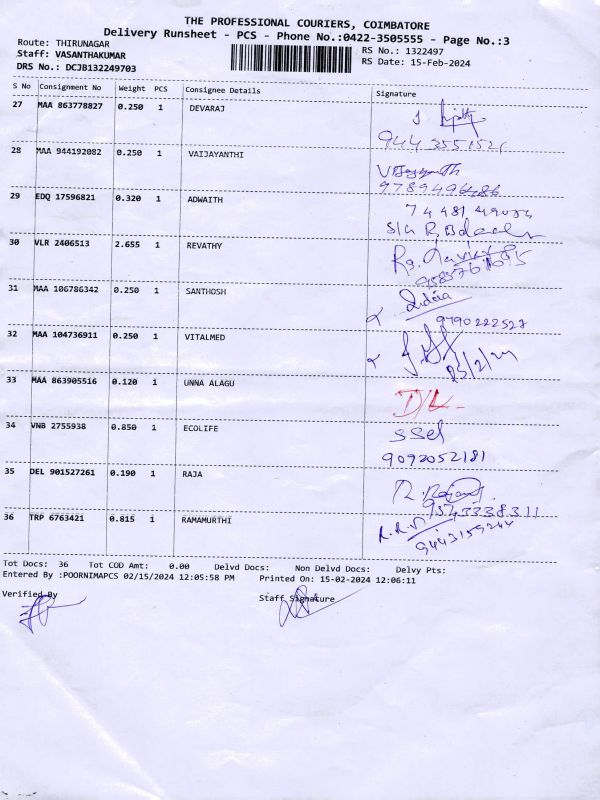 THE PROFESSIONAL COURIERS, COIMBATORE
Delivery Runsheet - PCS - Phone No.:0422-3505555 - Page No.:3
Route: THIRUNAGAR RS No.: 1322497
Staff: VASANTHAKUMAR RS Date: 15-Feb-2024
DRS No.: DCJB132249703
S No Consignment No Weight PCS Consignee Details Signature
27 MAA 863778827 0.250 1 DEVARAJ
28 MAA 944192082 0.250 1 VAIJAYANTHI
9789496486
29 EDQ 17596821 0.320 1 ADWAITH
S/G R.
30 VLR 2406513 2.655 1 REVATHY
31 MAA 106786342 0.250 1 SANTHOSH
9790222527
32 MAA 104736911 0.250 1 VITALMED
15/2/24
33 MAA 863905516 0.120 1 UNNA ALAGU
D/L
34 VNB 2755938 0.850 1 ECOLIFE
9092052181
35 DEL 901527261 0.190 1 RAJA
36 TRP 6763421 0.815 1 RAMAMURTHI
9443159244
Tot Docs: 36 Tot COD Amt: 0.00 Delvd Docs: Non Delvd Docs: Delvy Pts:
Entered By :POORNIMAPCS 02/15/2024 12:05:58 PM Printed On: 15-02-2024 12:06:11
Verified By Staff Signature